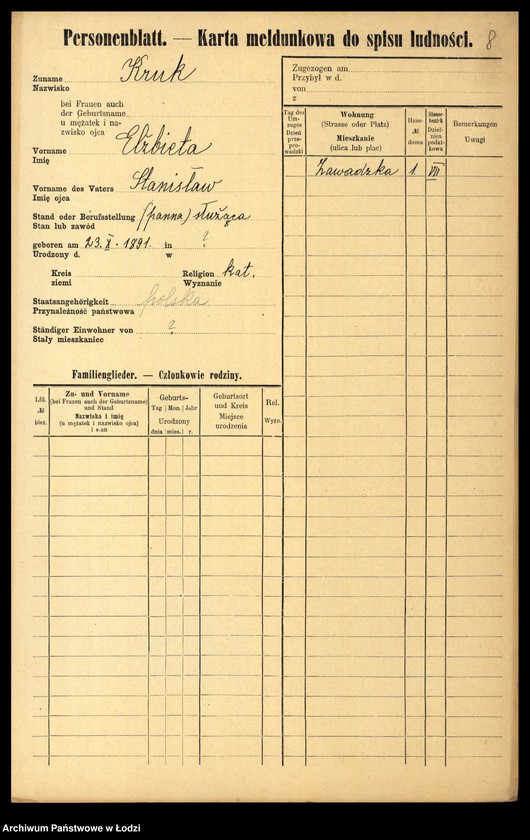 Personenblatt. — Karta meldunkowa do spisu ludności. 8
Zuname Kruk
Nazwisko
bei Frauen auch
der Geburtsname
u mężatek i na-
zwisko ojca
Vorname Elżbieta
Imię
Vorname des Vaters Stanisław
Imię ojca
Stand oder Berufsstellung (panna) służąca
Stan lub zawód
geboren am 23. X. 1891. in ?
Urodzony d. w
Kreis Religion kat.
ziemi Wyznanie
Staatsangehörigkeit polska
Przynależność państwowa
Ständiger Einwohner von ?
Stały mieszkaniec
Zugezogen am
Przybył w d.
von
z
Tag des Um-zuges Dzień prze-prowadzki
Wohnung
(Strasse oder Platz)
Mieszkanie
(ulica lub plac)
Haus-
№
domu
Steuer-bezirk Dziel-nica podat-kowa
Bemerkungen
Uwagi
Zawadzka 1. VII
Familienglieder. — Członkowie rodziny.
Lfd.
№
bież.
Zu- und Vorname
(bei Frauen auch der Geburtsname)
und Stand
Nazwisko i imię
(u mężatek i nazwisko ojca)
i stan
Geburts-
Tag | Mon. | Jahr
Urodzony
dnia | mies. | r.
Geburtsort
und Kreis
Miejsce
urodzenia
Rel.
Wyzn.
Archiwum Państwowe w Łodzi